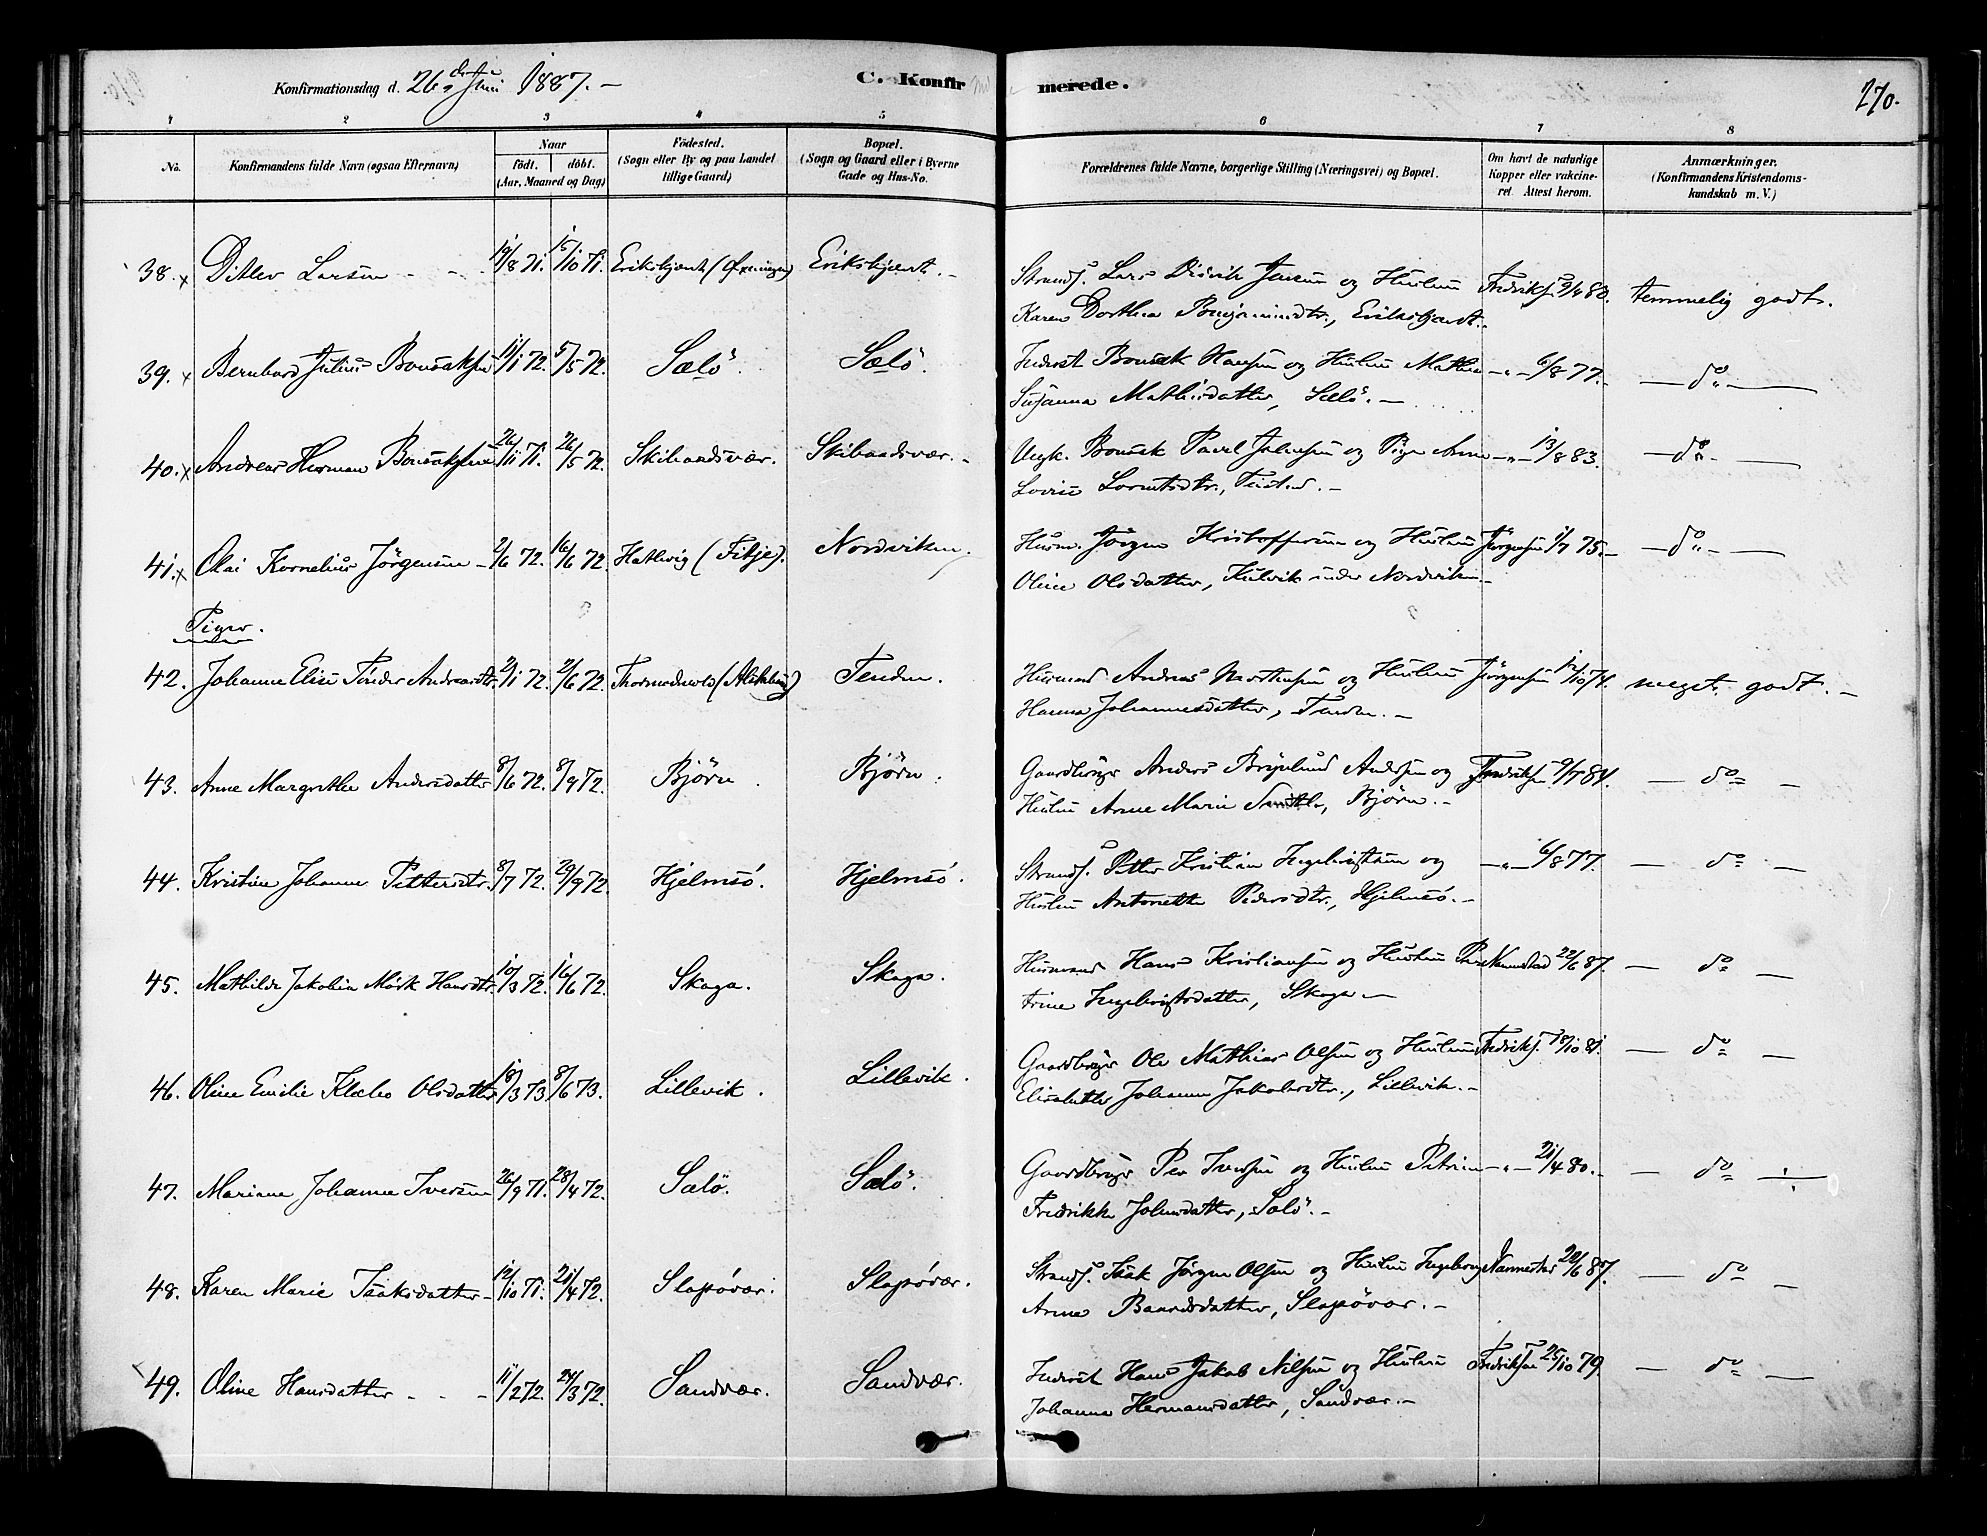 Konfirmationsdag d. 26de Juni 1887. –
C. Konfirmerede.
270.
1 2 3 4 5 6 7 8
No.
Konfirmandens fulde Navn (ogsaa Efternavn)
Naar
födt. döbt.
(Aar, Maaned og Dag)
Födested.
(Sogn eller By og paa Landet
tillige Gaard)
Bopæl.
(Sogn og Gaard eller i Byerne
Gade og Hus-No.
Forældrenes fulde Navne, borgerlige Stilling (Næringsvei) og Bopæl.
Om havt de naturlige
Kopper eller vakcine-
ret. Attest herom.
Anmærkninger.
(Konfirmandens Kristendoms-
kundskab m. V.)
38. x Ditlev Larsen - - 19/8 71. 15/10 71. Strandf. Lars Jensen og Hustru Fredriks. 5/4 80. temmelig godt.
Karen Dorthea
39. x Bernhard Julius Bonsaksen 11/1 72. 5/5 72. Sælö. Sælö. Inderst Bonsak Hansen og Hustru Mathea –„– 6/8 77. – do –
Susanna Mathisdatter, Sælö. –
40. x Andreas Herman Bonsaksen 26/11 71. 26/5 72. Skibaadsvær. Skibaadsvær. – Ungk. Bonsak Pavel Johnsen og Pige Anne –„– 13/8 83. – do –
Lovise
41. x Olai Kornelius Jörgensen – 2/6 72. 16/6 72. Hatlevig (Tilje). Nordviken. Husm. Jörgen Kristoffersen og Hustru Jörgensen 1/7 75. – – do –
Oline Olsdatter, Kulvik under Nordviken –
Piger.
42. Johanne Elise Tönder Andreasdtr. 2/1 72. 2/6 72. Tenden. Husmand Andreas Mortensen og Hustru Jörgensen 12/10 74. meget godt. –
Hanna Johannesdatter, Tenden. –
43. Anne Margrethe Andersdatter 8/6 72. 8/9 72. Björn. Björn. Gaardbruger Anders Andersen og Fredriksen 9/7 84. – do –
Hustru Anne Marie Björn. –
44. Kristine Johanne Pettersdtr. 8/7 72. 29/9 72. Hjelmsö. Hjelmsö. Strandf. Petter Kristian Ingebrigtsen og –„– 6/8 77. – do –
Hustru Antonette Pedersdtr., Hjelmsö. –
45. Mathilde Jakobine Mörk Hansdtr. 10/3 72. 16/6 72. Skaga. Skaga. Husmand Hans Kristiansen og Hustru Pe- Nannestad 22/6 87. – do –
trine Ingebrigtsdatter, Skaga –
46. Oline Emilie Klæbo Olsdatter 18/3 73. 8/6 73. Lillevik. Lillevik. Gaardbruger Ole Mathias Olsen og Hustru Fredriks. 18/10 81. – do –
Elisabeth Johanna Jakobsdtr., Lillevik. –
47. Mariane Johanne Iversen 26/9 71. 28/4 72. Sælö. Sælö. Gaardbruger Per Iversen og Hustru Petrine –„– 21/4 80. – – do –
Fredrikke Johnsdatter, Sælö. –
48. Karen Marie Isaksdatter – 12/10 71. 21/4 72. Slapövær. Slapövær. Strandf. Isak Jörgen Olsen og Hustru Ingeborg Nannestad 20/6 87. – do –
Anne Baardsdatter, Slapövær. –
49. Oline Hansdatter - - - 11/2 72. 24/3 72. Sandvær. Sandvær. Inderst Hans Jakob Nilsen og Hustru Fredriksen 25/10 79. – do –
Johanna Hermansdatter, Sandvær. –